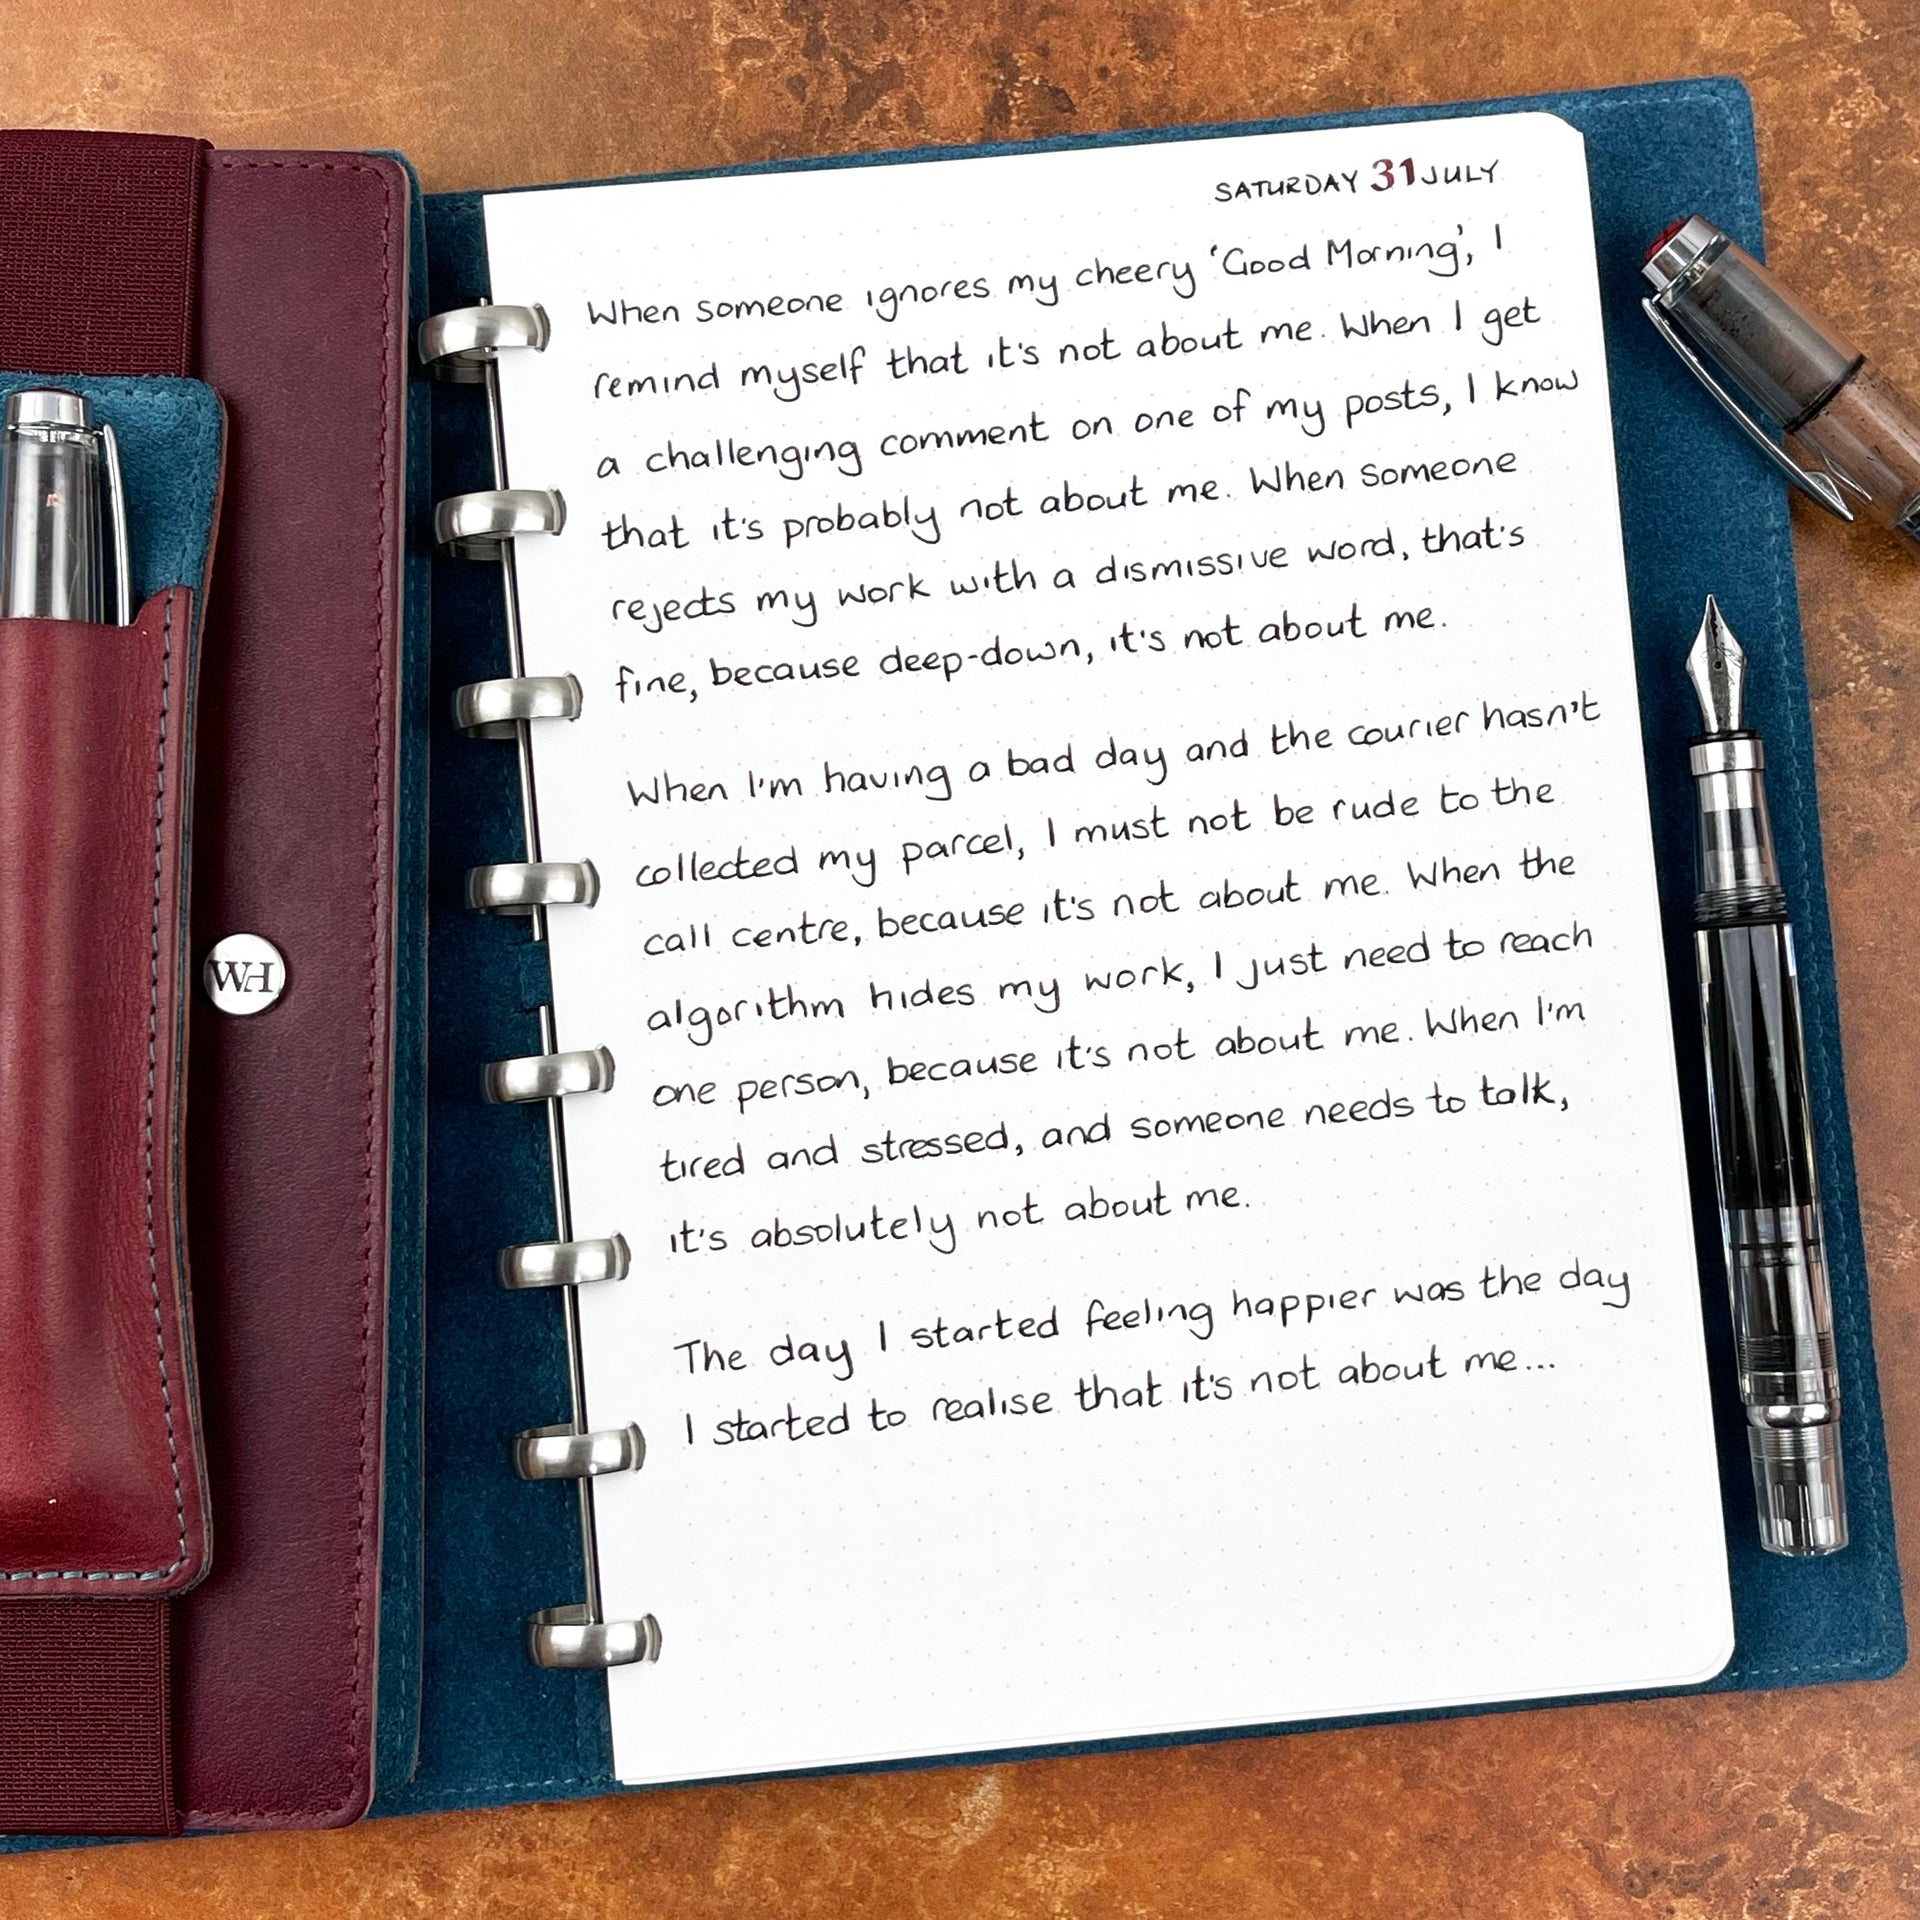 SATURDAY 31 JULY
When someone ignores my cheery 'Good Morning', I
remind myself that it's not about me. When I get
a challenging comment on one of my posts, I know
that it's probably not about me. When someone
rejects my work with a dismissive word, that's
fine, because deep-down, it's not about me.
When I'm having a bad day and the courier hasn't
collected my parcel, I must not be rude to the
call centre, because it's not about me. When the
algorithm hides my work, I just need to reach
one person, because it's not about me. When I'm
tired and stressed, and someone needs to talk,
it's absolutely not about me.
The day I started feeling happier was the day
I started to realise that it's not about me...
WH